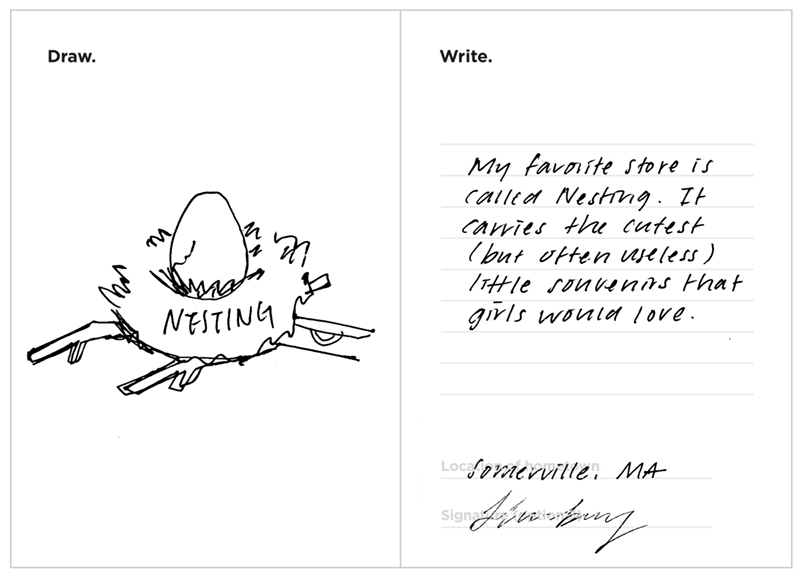 Draw.
NESTING
Write.
My favorite store is
called Nesting. It
carries the cutest
(but often useless)
little souvenirs that
girls would love.
Location of hometown
Somerville, MA
Signature (optional)